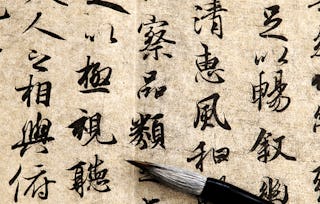 足以暢叙幽
清惠風和
察品類之
以極視聽
人之相與俯